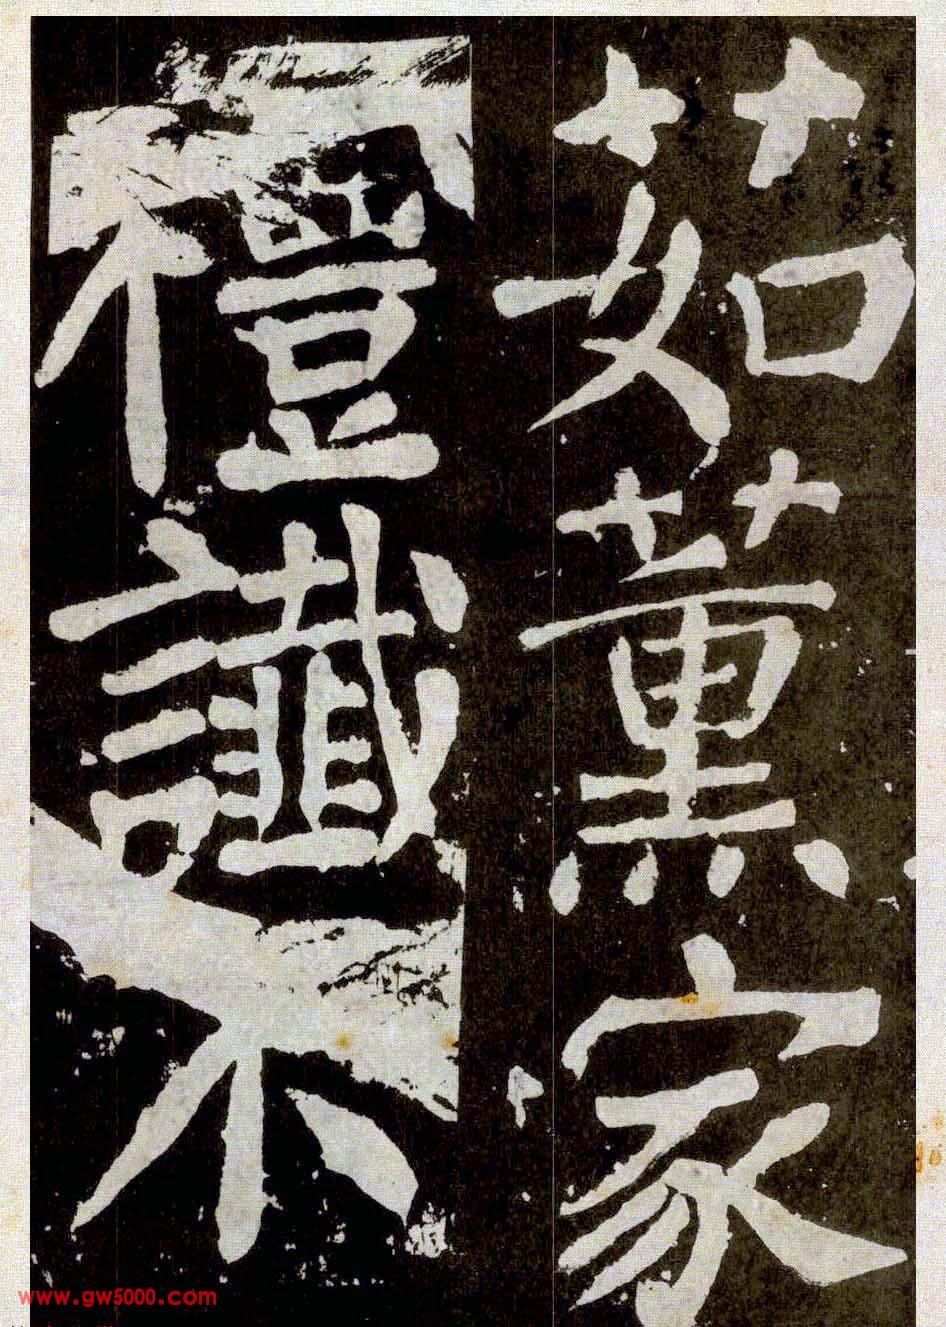 茹薰家
禮讖不
www.gw5000.com